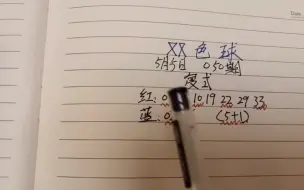 XX色球
5月5日 050期
复式
红:0 10 19 22 29 33
蓝:0 (5+1)